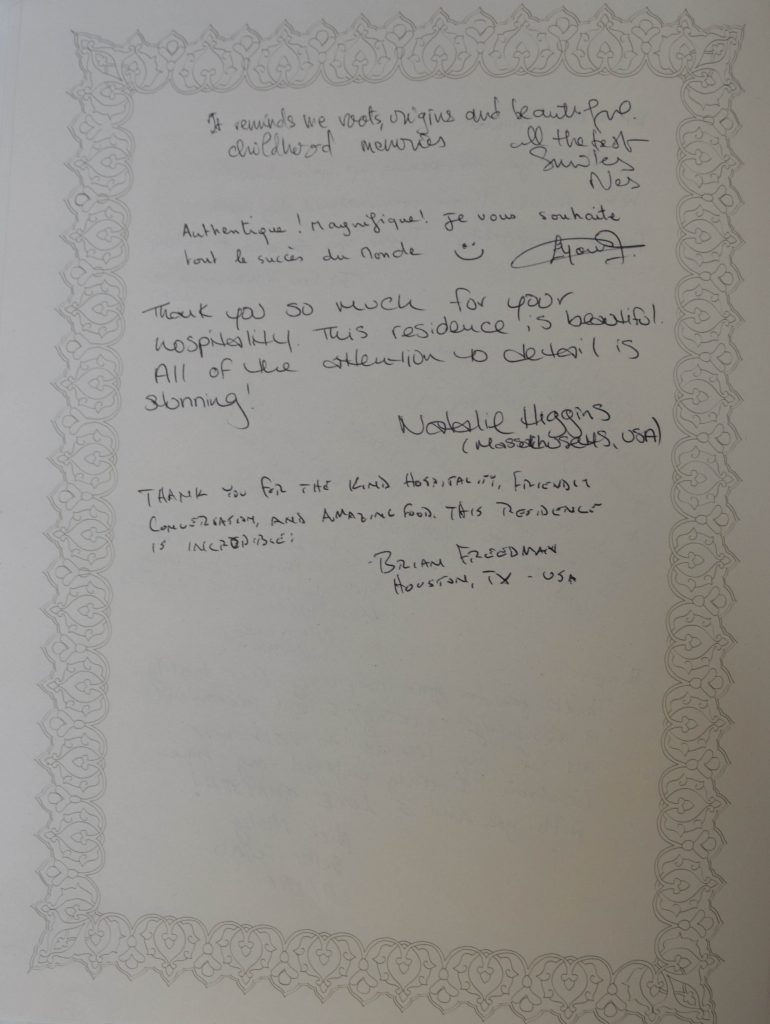 It reminds me roots, origins and beautiful
childhood memories all the best
Smiles
Nes
Authentique ! Magnifique ! Je vous souhaite
tout le succès du Monde
Thank you so much for your
hospitality. This residence is beautiful.
All of the attention to detail is
stunning!
Natalie Higgins
(Massachusetts, USA)
THANK YOU FOR THE KIND HOSPITALITY, FRIENDLY
CONVERSATION, AND AMAZING FOOD. THIS RESIDENCE
IS INCREDIBLE!
-BRIAN FREEDMAN
HOUSTON, TX - USA